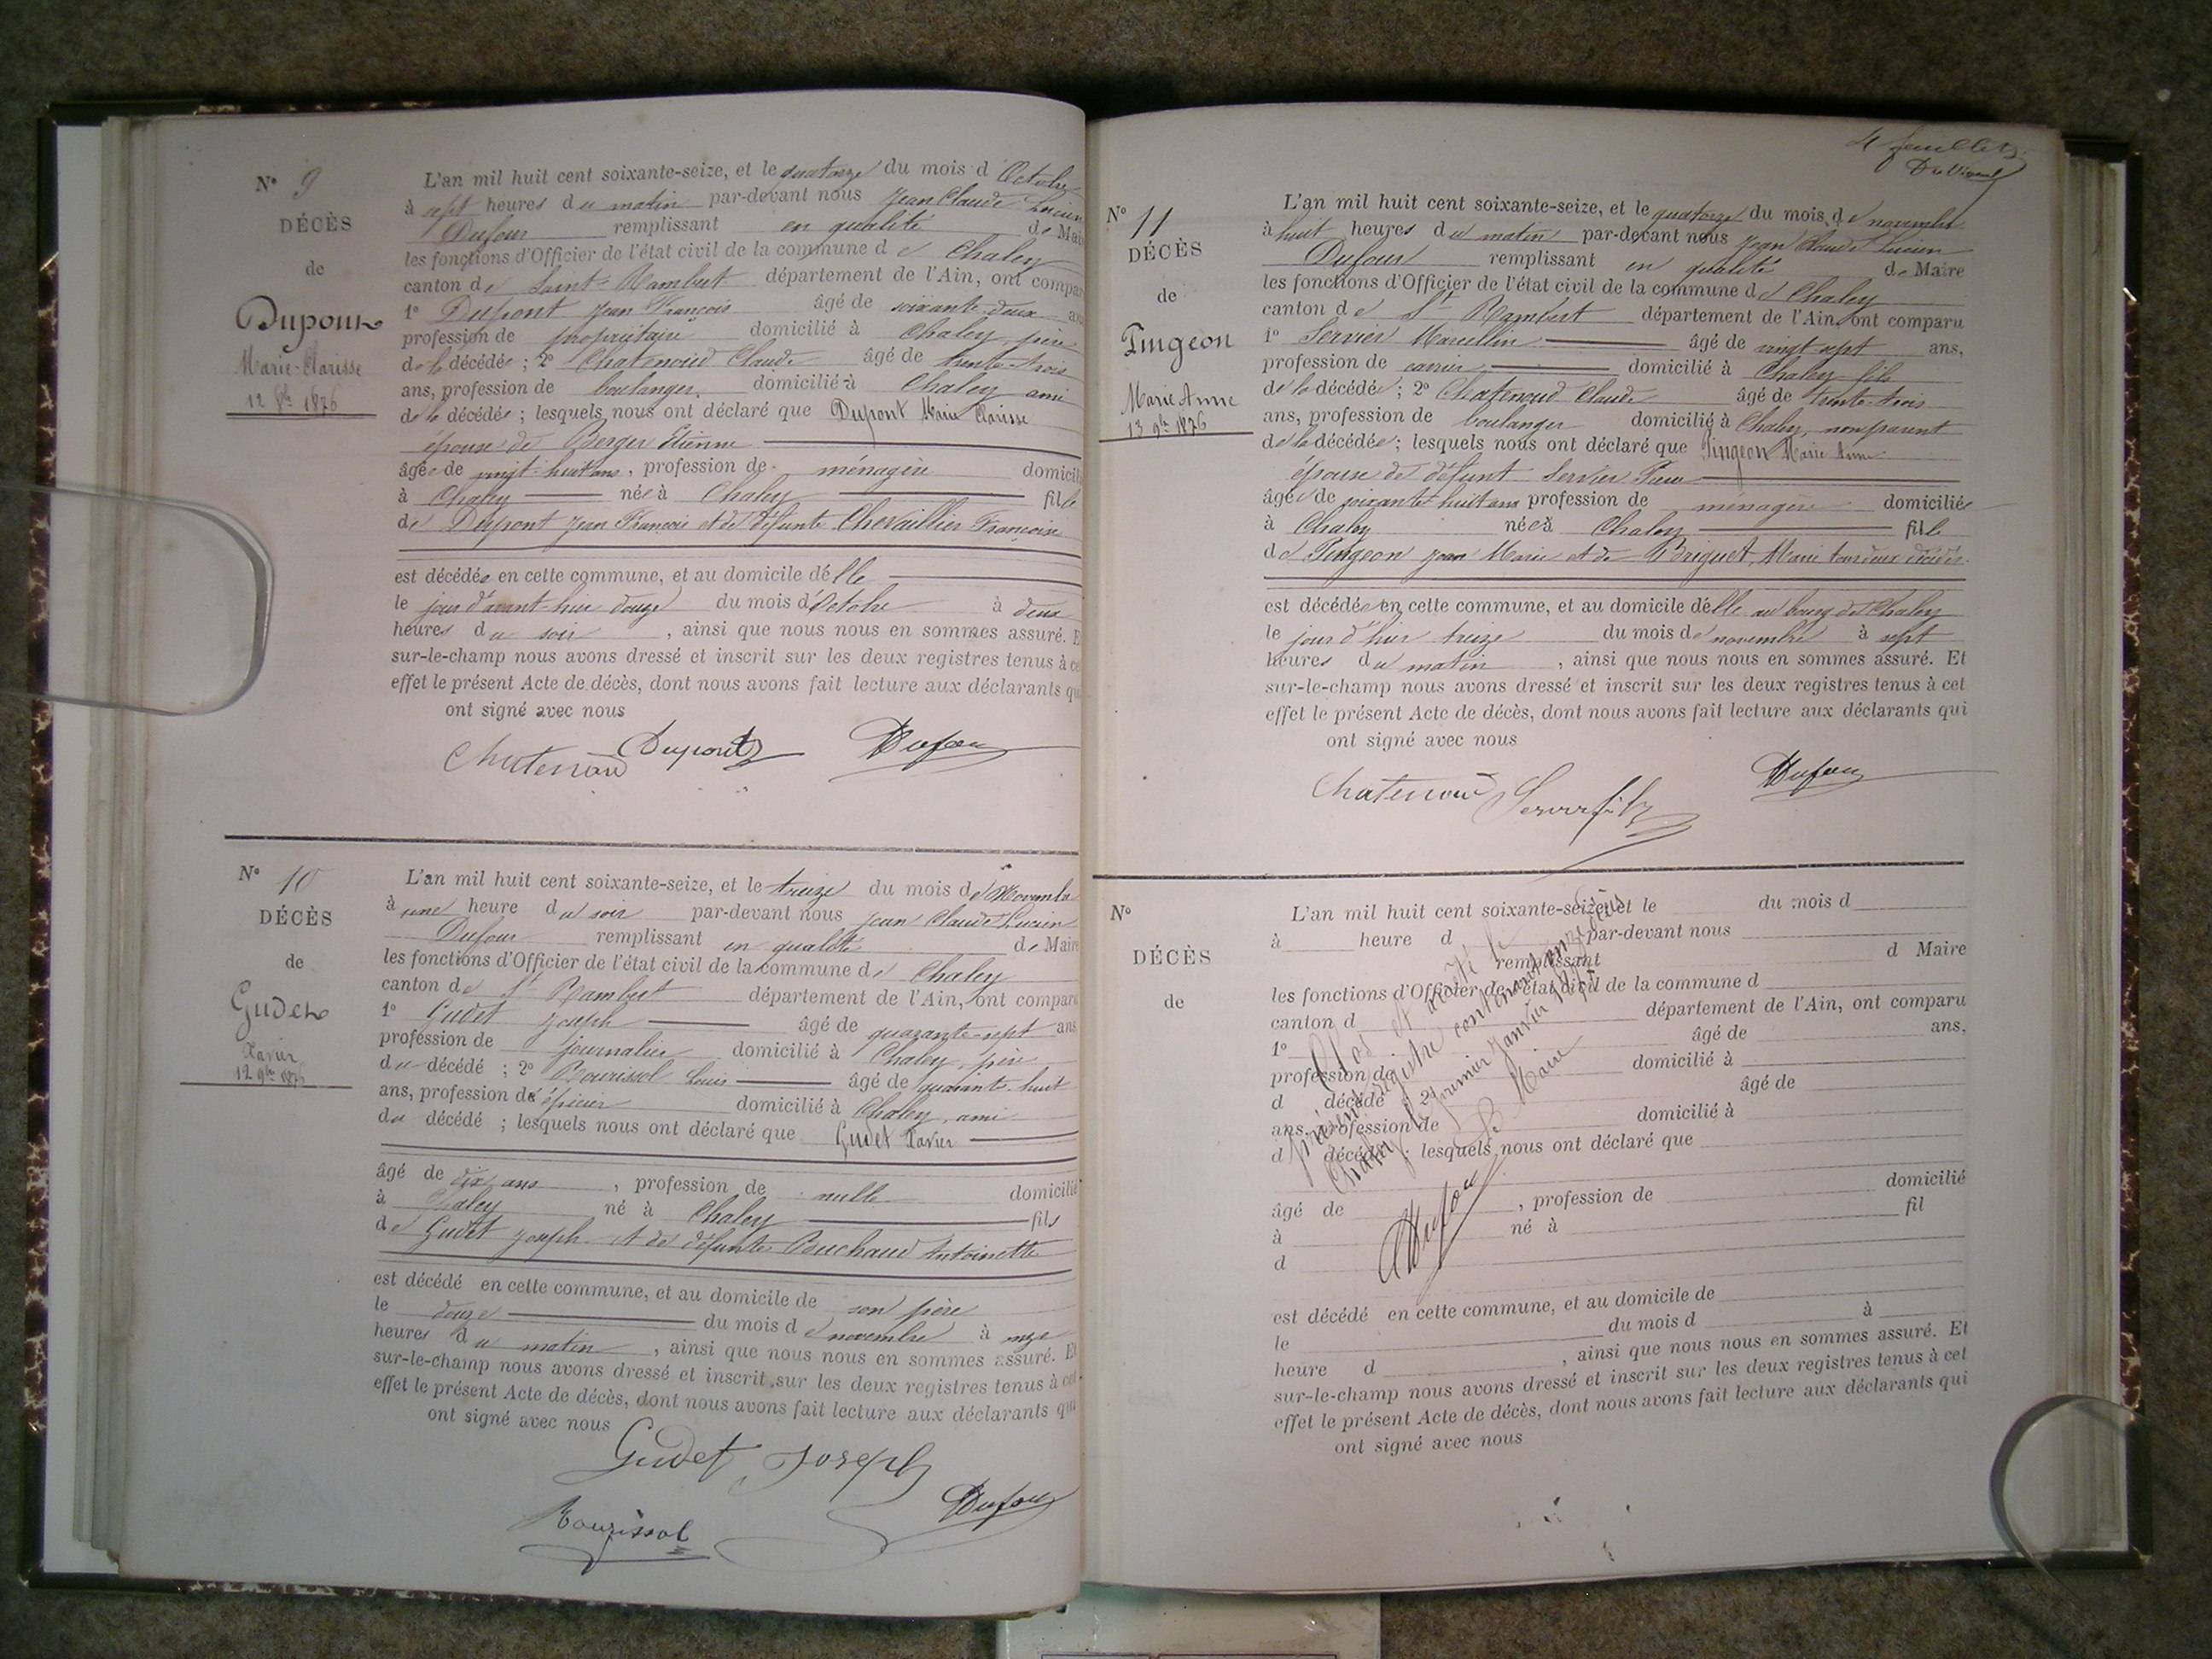 N° 9
DÉCÈS
de
Dupont
Marie-Clarisse
12 8bre 1876
L'an mil huit cent soixante-seize, et le quatorze du mois d'Octobre
à sept heures du matin par-devant nous Jean Claude Lucien
Dufour remplissant en qualité de Mai
les fonctions d'Officier de l'état civil de la commune de Chaley
canton de Saint-Rambert département de l'Ain, ont compar
1° Dupont Jean François âgé de soixante-deux ans
profession de propriétaire domicilié à Chaley, père
de la décédée ; 2° Chatenoud Claude âgé de trente-trois
ans, profession de boulanger, domicilié à Chaley ami
de la décédée ; lesquels nous ont déclaré que Dupont Marie Clarisse
épouse de Berger Etienne
âgée de vingt-huit ans, profession de ménagère domicili
à Chaley née à Chaley fille
de Dupont Jean François et de défunte Chevaillier Françoise
est décédée en cette commune, et au domicile d'elle
le jour d'avant-hier douze du mois d'Octobre à deux
heures du soir, ainsi que nous nous en sommes assuré. E
sur-le-champ nous avons dressé et inscrit sur les deux registres tenus à ce
effet le présent Acte de décès, dont nous avons fait lecture aux déclarants qu
ont signé avec nous
Chatenoud Dupont Dufour
N° 10
DÉCÈS
de
Gudet
Xavier
12 9bre 1876
L'an mil huit cent soixante-seize, et le treize du mois de Novembre
à une heure du soir par-devant nous Jean Claude Lucien
Dufour remplissant en qualité de Maire
les fonctions d'Officier de l'état civil de la commune de Chaley
canton de St Rambert département de l'Ain, ont comparu
1° Gudet Joseph âgé de quarante-sept ans
profession de journalier domicilié à Chaley, père
du décédé ; 2° Bourissol Louis âgé de quarante-huit
ans, profession d'épicier domicilié à Chaley, ami
du décédé ; lesquels nous ont déclaré que Gudet Xavier
âgé de dix ans, profession de nulle domicilié
à Chaley né à Chaley fils
de Gudet Joseph et de défunte Buchaud Antoinette
est décédé en cette commune, et au domicile de son père
le douze du mois de novembre à onze
heures du matin, ainsi que nous nous en sommes assuré. Et
sur-le-champ nous avons dressé et inscrit sur les deux registres tenus à cet
effet le présent Acte de décès, dont nous avons fait lecture aux déclarants qui
ont signé avec nous
Gudet Joseph
Bourissol Dufour
4e feuillet
N° 11
DÉCÈS
de
Pingeon
Marie Anne
13 9bre 1876
L'an mil huit cent soixante-seize, et le quatorze du mois de novembre
à huit heures du matin par-devant nous Jean Claude Lucien
Dufour remplissant en qualité de Maire
les fonctions d'Officier de l'état civil de la commune de Chaley
canton de St Rambert département de l'Ain, ont comparu
1° Servier Marcellin âgé de vingt-sept ans,
profession de carrier domicilié à Chaley fils
de la décédée ; 2° Chatenoud Claude âgé de trente-trois
ans, profession de boulanger domicilié à Chaley, non parent
de la décédée ; lesquels nous ont déclaré que Pingeon Marie Anne
épouse de défunt Servier
âgée de soixante-huit ans profession de ménagère domiciliée
à Chaley née à Chaley fille
de Pingeon Jean Marie et de Briguet Marie tous deux décédés
est décédée en cette commune, et au domicile d'elle au bourg de Chaley
le jour d'hier treize du mois de novembre à sept
heures du matin, ainsi que nous nous en sommes assuré. Et
sur-le-champ nous avons dressé et inscrit sur les deux registres tenus à cet
effet le présent Acte de décès, dont nous avons fait lecture aux déclarants qui
ont signé avec nous
Chatenoud Dufour
N°
DÉCÈS
de
L'an mil huit cent soixante-seize, et le du mois d
à heure d par-devant nous
remplissant d Maire
les fonctions d'Officier de l'état civil de la commune d
canton d département de l'Ain, ont comparu
1° âgé de ans,
profession de domicilié à
d décédé ; 2° âgé de
ans, profession de domicilié à
d décédé ; lesquels nous ont déclaré que
âgé de , profession de domicilié
à né à fil
d
est décédé en cette commune, et au domicile de
le du mois d à
heure d , ainsi que nous nous en sommes assuré. Et
sur-le-champ nous avons dressé et inscrit sur les deux registres tenus à cet
effet le présent Acte de décès, dont nous avons fait lecture aux déclarants qui
ont signé avec nous
Clos et arrêté le
présent registre contenant onze actes
Chaley le premier janvier 1877
Le Maire
Dufour